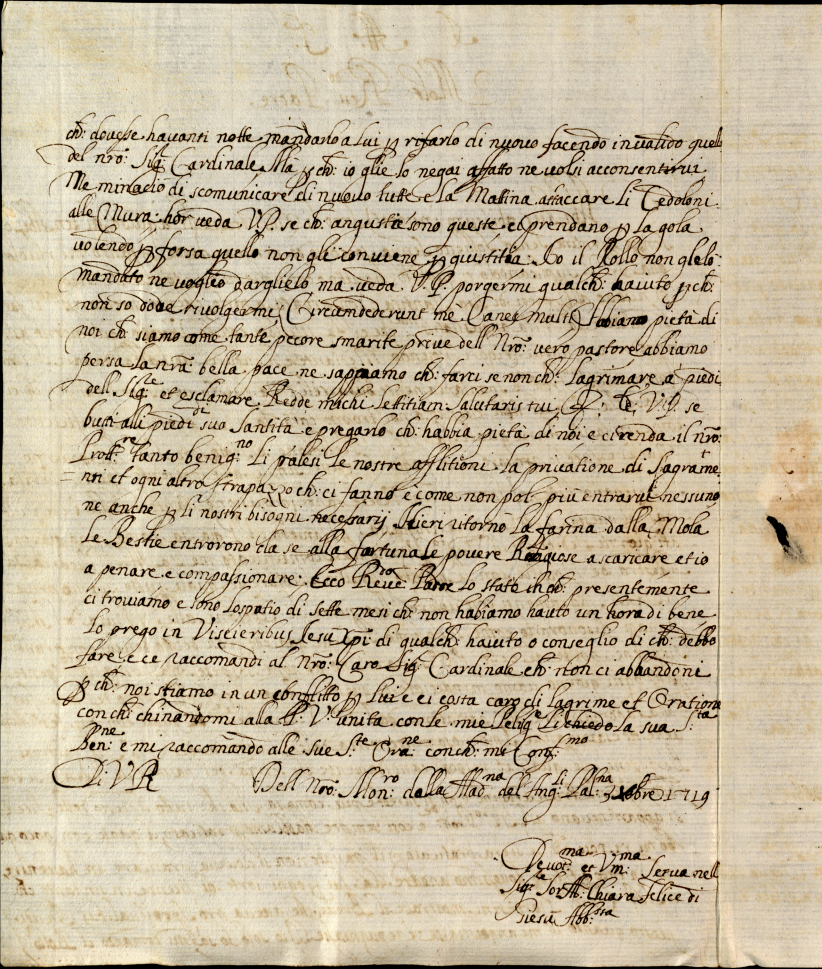 ch: dovesse havanti notte mandarlo a Lui p rifarlo di nuovo facendo invalido quello
del nro: Sig: Cardinale Ma p ch: io glie lo negai afatto ne volsi acconsentirvi
Me minaciò di scomunicare di nuovo tutte e La Mattina attaccare Li Cedoloni
alle Mura: hor veda V.P. se ch: angustie sono queste e ci prendano p La gola
volendo p forsa quello non gli conviene p giustitia Io il Rollo non glelo
mandato ne voglio darglielo ma veda V.P. porgermi qualch: haiuto p ch:
non so dove rivolgermi Circumdederunt me Canes multi Habiano pietà di
noi ch: siamo come tante pecore smarite prive dell Nro: vero pastore abbiamo
persa la nra: bella pace ne sappiamo ch: farci se non ch: Lagrimare a piedi
dell Sig:re et esclamare Redde michi Lettitiam Salutaris tui V.P. se
butti alli piedi di sua Santità e pregarlo ch: habbia pietà di noi e ci renda il nro:
Prott:re tanto benig:no Li palesi Le nostre afflitioni La privatione di Sagrame
nti et ogni altro strapazzo ch: ci fanno e come non pol più entrarvi nessuno
ne anche p li nostri bisogni necessarij Hieri ritornò La farina dalla Mola
Le Bestie entrorono da se alla fortuna le povere Religiose a scaricare et io
a penare e compassionare: Ecco Reve:do Padre Lo stato in ch: presentemente
ci troviamo e sono Lo spatio di sette mesi ch: non habiamo hauto un hora di bene
Lo prego in Viscieribus Jesu Xpi: di qualch: haiuto o conseglio di ch: debbo
fare e ce raccomandi al Nro: Caro Sig: Cardinale ch: non ci abbandoni
p ch: noi stiamo in un conflitto p Lui e ci costa caro di Lagrime et Orationi
con ch: chinandomi alla P: V: unita con le mie Relig:e Li chiedo La sua S:ta
Ben:ne e mi raccomando alle sue S:te Ora:ne con ch: mi Conf:mo
Di V R Dell Nro: Mon:ro della Mad:na del Ang:li Pal:na 9bre 1719
Devot:ma et Um:ma Serva nell
Sig:re Sor M: Chiara Felice di
Giesù Abb:sta